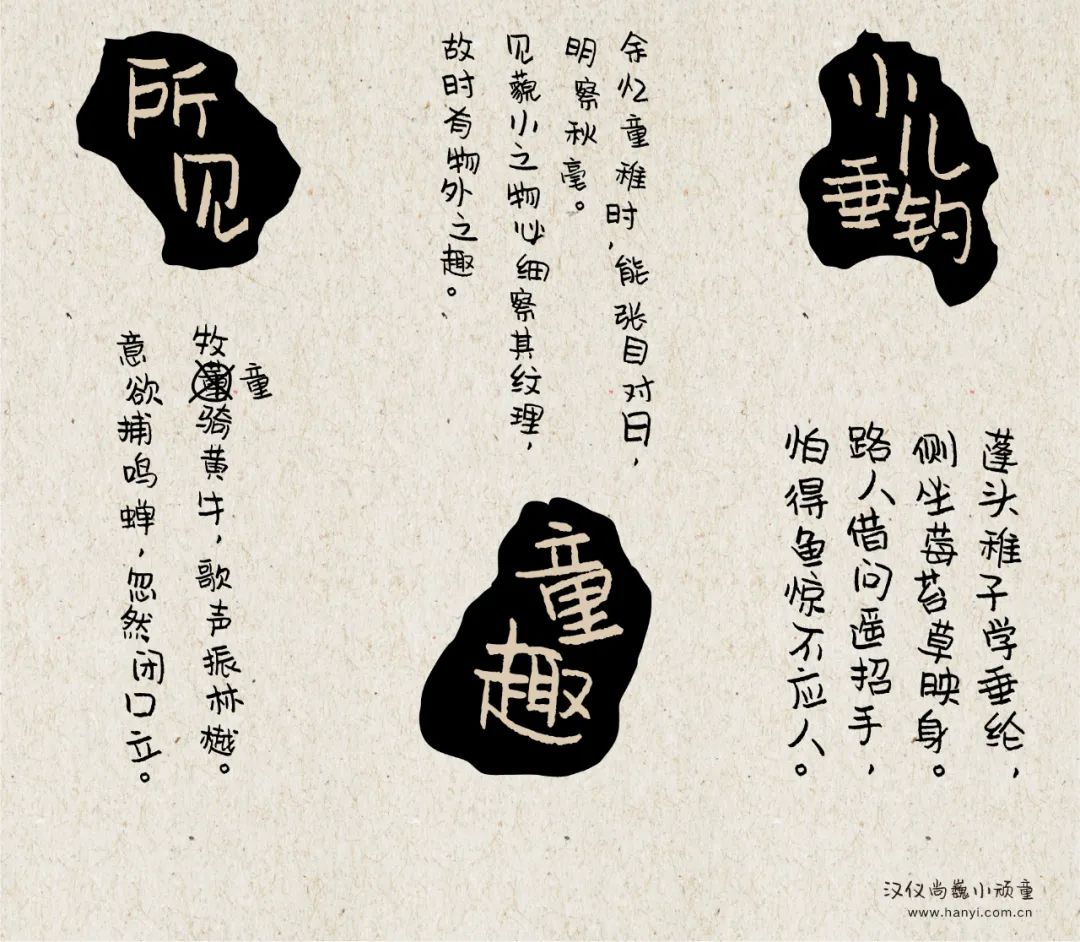 小儿
垂钓
蓬头稚子学垂纶，
侧坐莓苔草映身。
路人借问遥招手，
怕得鱼惊不应人。
童
趣
余忆童稚时，能张目对日，
明察秋毫。
见藐小之物必细察其纹理，
故时有物外之趣。
所
见
牧童骑黄牛，歌声振林樾。
意欲捕鸣蝉，忽然闭口立。
汉仪尚巍小顽童
www.hanyi.com.cn